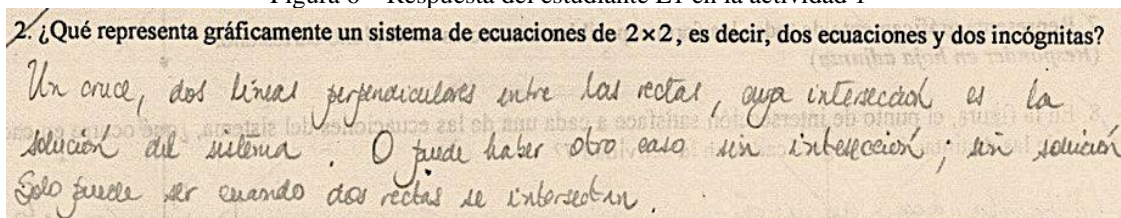 Figura 6 – Respuesta del estudiante E1 en la actividad 1
2. ¿Qué representa gráficamente un sistema de ecuaciones de 2×2, es decir, dos ecuaciones y dos incógnitas?
Un cruce, dos líneas perpendiculares entre las rectas, cuya intersección es la
solución del sistema. O puede haber otro caso sin intersección; sin solución
Solo puede ser cuando dos rectas se intersectan.